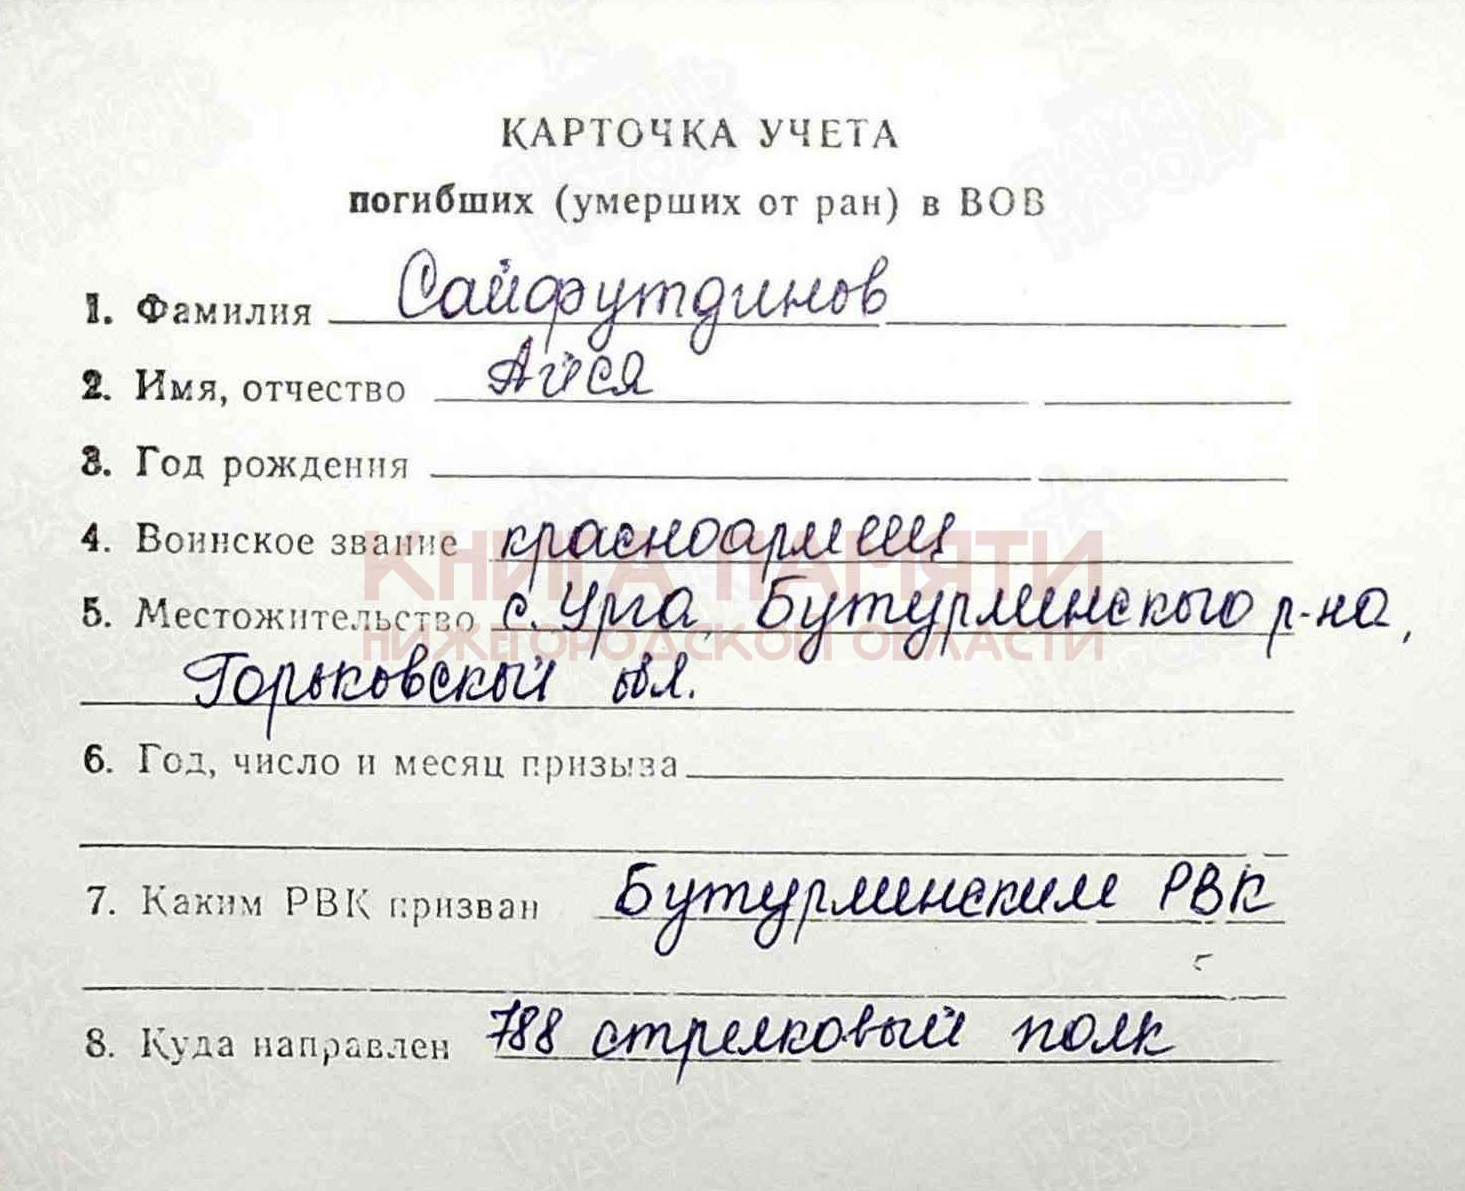 КАРТОЧКА УЧЕТА
погибших (умерших от ран) в ВОВ
1. Фамилия Сайфутдинов
2. Имя, отчество Айся
3. Год рождения
4. Воинское звание красноармеец
КНИГА ПАМЯТИ
5. Местожительство с. Урга, Бутурлинского р-на,
НИЖЕГОРОДСКОЙ ОБЛАСТИ
Горьковский обл.
6. Год, число и месяц призыва
7. Каким РВК призван Бутурлинским РВК
8. Куда направлен 788 стрелковый полк
ПАМЯТЬ НАРОДА